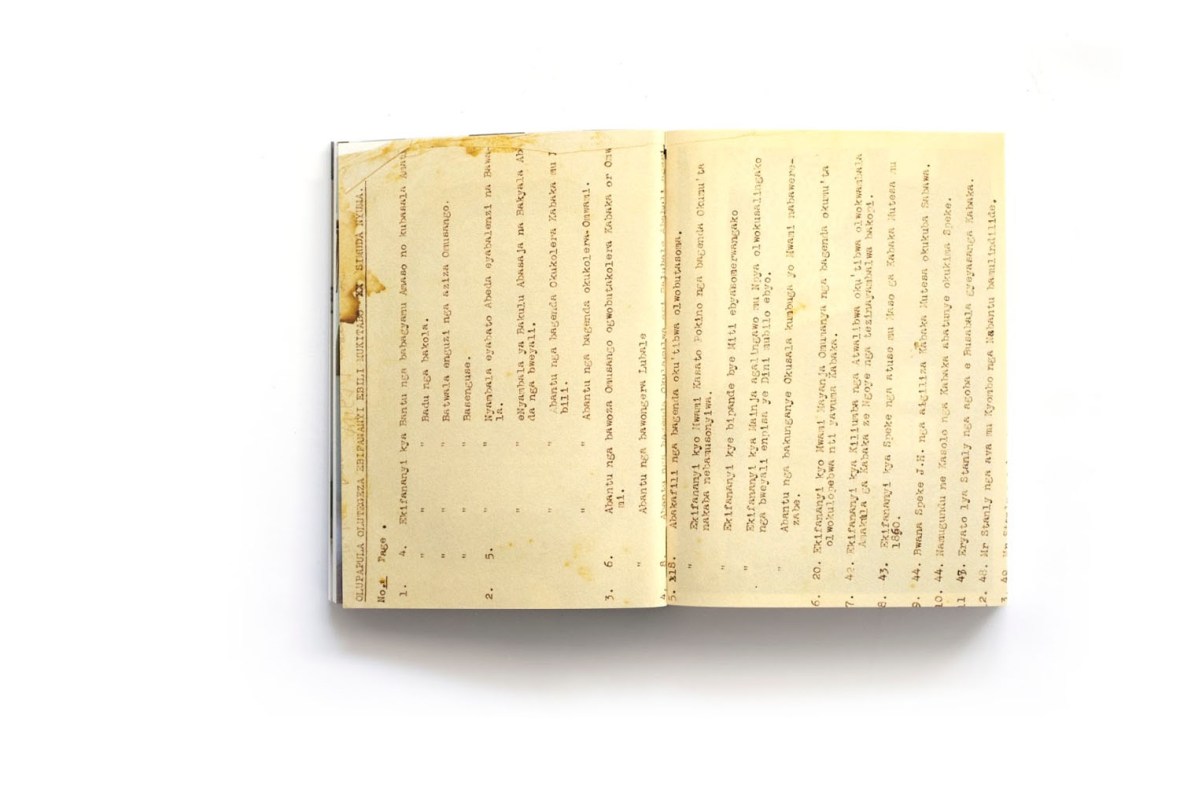 OLUPAPULA OLUTEGEZA EBIFANANYI EBILI MUKITABO XX SIMUDA NYUMA.
No. Page.
1. 4. Ekifananyi kya Bantu nga babagyamu Amaso no kubasala
" " " Badu nga bakola.
" " " Batwala enguzi nga aziza Omusango.
" " " Basenguse.
2. 5. " " Nyambala eyabato Abeda eyabalenzi na Bawa-
la.
" " eNyambala ya Bakulu Abasaja na Bakyala Ab
da nga bweyali.
" " Abantu nga bagenda Okukolera Kabaka mu
bili.
" " Abantu nga bagenda okukolera Omwami.
3. 6. Abantu nga bawoza Omusango ogwobutakolera Kabaka or Omw
mi.
" Abantu nga bawongera Lubale
5. 18. Abakafili nga bagenda oku'tibwa olwobutasoma.
" Ekifananyi kyo Mwami Kusato Pokino nga bagenda Okumu'ta
nakaba netamusonyiwa.
" Ekifananyi kye bipande bye Miti ebyasomerwangako
" Ekifananyi kya Mainja agalingawo mu Ngya olwokusalingako
nga bweyali enpisa ye Dini mubilo ebyo.
" Abantu nga bakunganye Okusala kumbuga yo Mwami nabawere-
zabe.
6. 20. Ekifananyi kyo Mwami Mayanja Omumanya nga bagenda okumu'ta
olwokulopebwa nti yavuma Kabaka.
7. 42. Ekifananyi kya Killumba nga Atwalibwa oku'tibwa olwokwambala
Amakula ga Kabaka ze Ngoye nga tezinayambalwa bakopi.
8. 43. Ekifananyi kya Speke nga atuse mu Maso ga Kabaka Mutesa mu
1860.
9. 44. Bwana Speke J.H. nga aigiliza Kabaka Mutesa okukuba Sabawa.
10. 44. Namugundu ne Kasolo nga Kabaka abatunye okukima Speke.
11 47. Eryato lya Stanly nga agoba e Busabala gyeyasanga Kabaka.
2. 48. Mr Stanly nga ava mu Kyombo nga Nabantu bamulindilide.